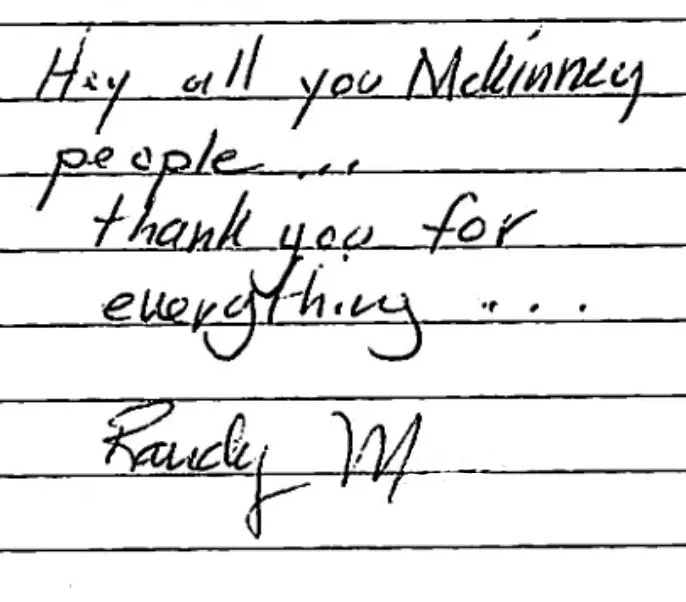 Hey all you McKinney
people...
thank you for
everything ....
Randy M